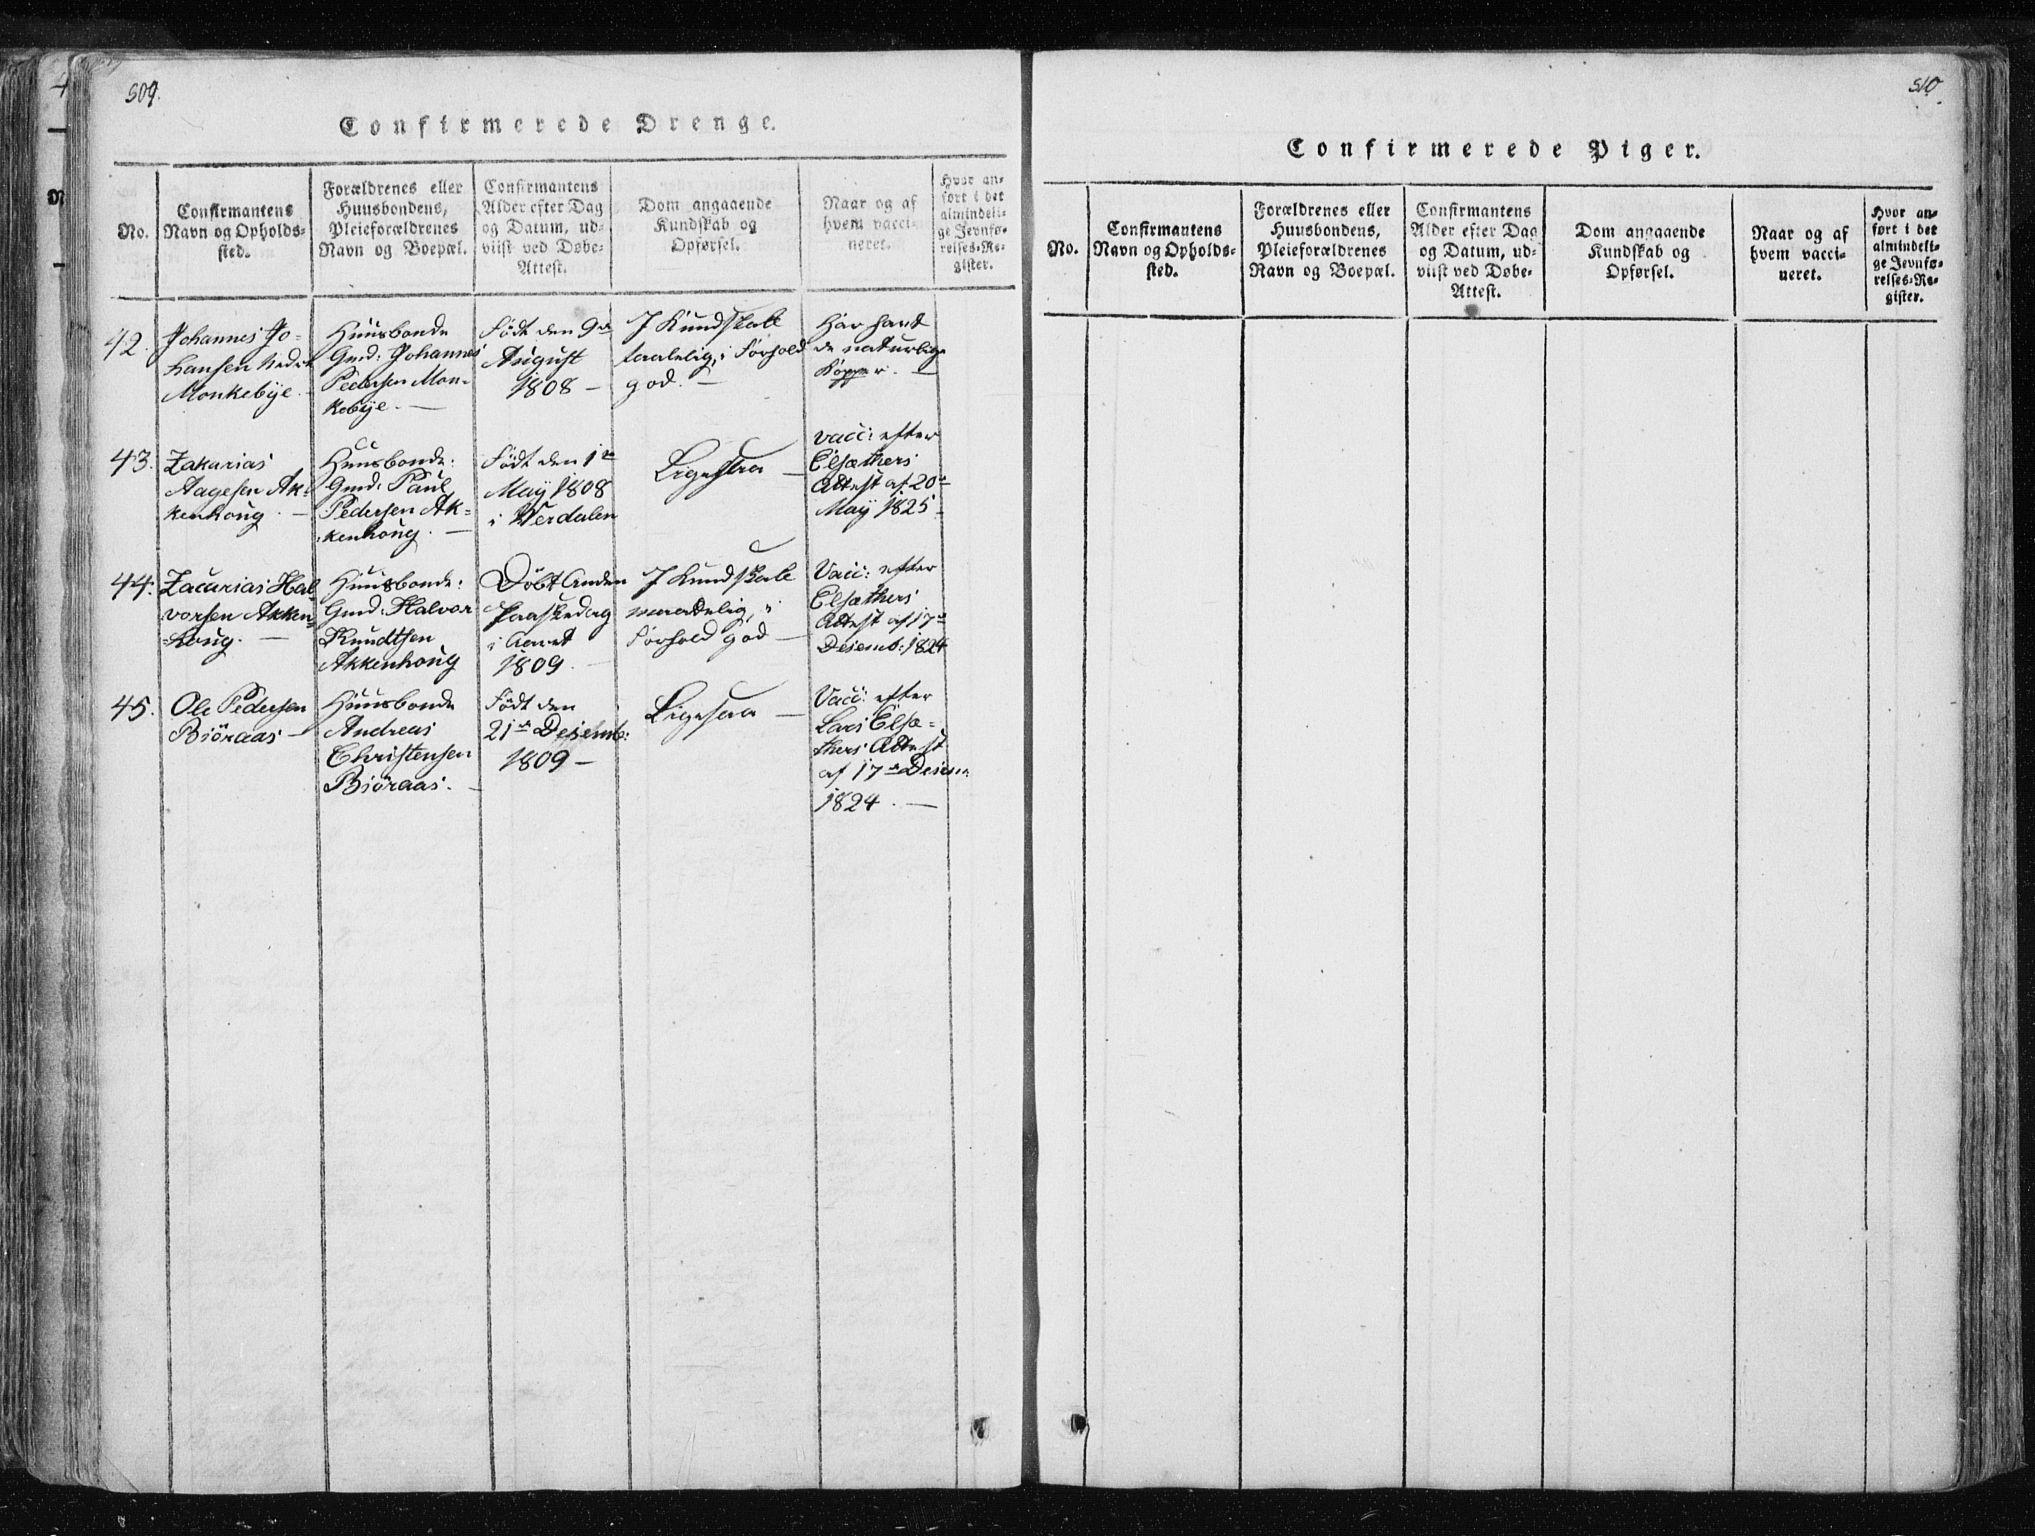 509.
Confirmerede Drenge.
No.
Confirmantens
Navn og Opholds-
sted.
Forældrenes eller
Huusbondens,
Pleieforældrenes
Navn og Boepæl.
Confirmantens
Alder efter Dag
og Datum, ud-
viist ved Døbe-
Attest.
Dom angaaende
Kundskab og
Opførsel.
Naar og af
hvem vacci-
neret.
Hvor an-
ført i det
almindeli-
ge Jevnfø-
relses-Re-
gister.
42.
Johannes Jo-
hansen Nedre
Monkebÿe.
Huusbonde
Gmd: Johannes
Pedersen Mon-
kebÿe. —
Født den 9de
August
1808 —
I Kundskab
taalelig, i Forhold
god. —
Har havt
de naturlige
Kopper. —
43.
Zakarias
Aagesen Ak-
kenhoug —
Huusbonde:
Gmd: Paul
Pedersen Ak-
kenhoug. —
Født den 1te
Maÿ 1808
i Værdalen
Ligesaa —
vacc: efter
Elsæthers
Attest af 20de
Maÿ 1825 —
44.
Zacarias Hal
vorsen Akken-
houg. —
Huusbonde:
Gmd: Halvor
Knudtsen
Akkenhoug
Døbt Anden
Paaskedag
i Aaret
1809. —
I Kundskab
maadelig, i
Forhold god —
Vacc: efter
Elsæthers
Attest af 17de
Desemb: 1824
45.
Ole Pedersen
Biöraas —
Huusbonde
Andreas
Christensen
Biöraas. —
Født den
21de Desemb:
1809 —
Ligesaa —
Vacc: efter
Lars Elsæ-
thers Attest
af 17de Desem:
1824. —
510.
Confirmerede Piger.
No.
Confirmantens
Navn og Opholds-
sted.
Forældrenes eller
Huusbondens,
Pleieforældrenes
Navn og Boepæl.
Confirmantens
Alder efter Dag
og Datum, ud-
viist ved Døbe-
Attest.
Dom angaaende
Kundskab og
Opførsel.
Naar og af
hvem vacci-
neret.
Hvor an-
ført i det
almindeli-
ge Jevnfø-
relses-Re-
gister.